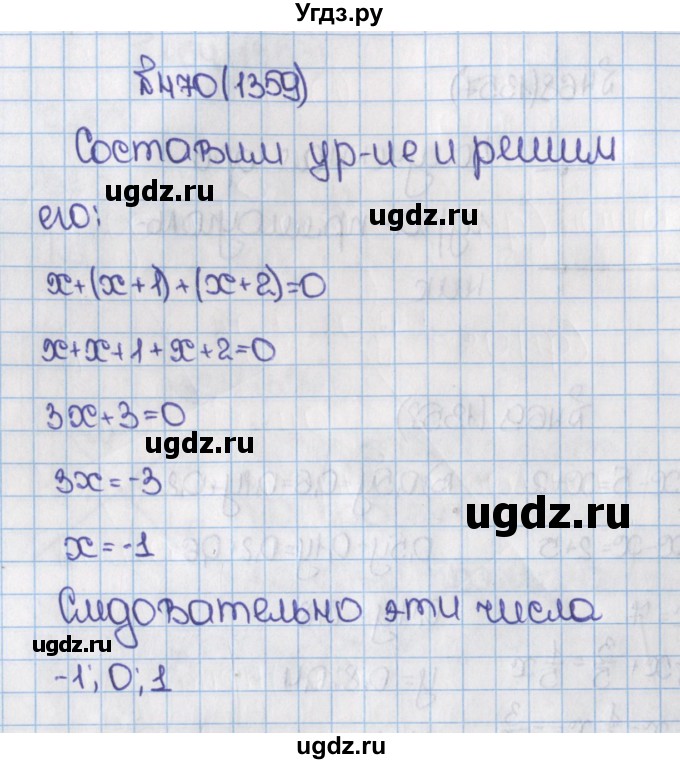 Угдз.ру
№470(1359)
Составим ур-ие и решим
ugdz.ru ugdz.ru
его:
x+(x+1)+(x+2)=0
x+x+1+x+2=0
3x+3=0
ugdz.ru
3x=-3
ugdz.ru
x=-1
Следовательно эти числа
ugdz.ru
-1; 0; 1
ugdz.ru